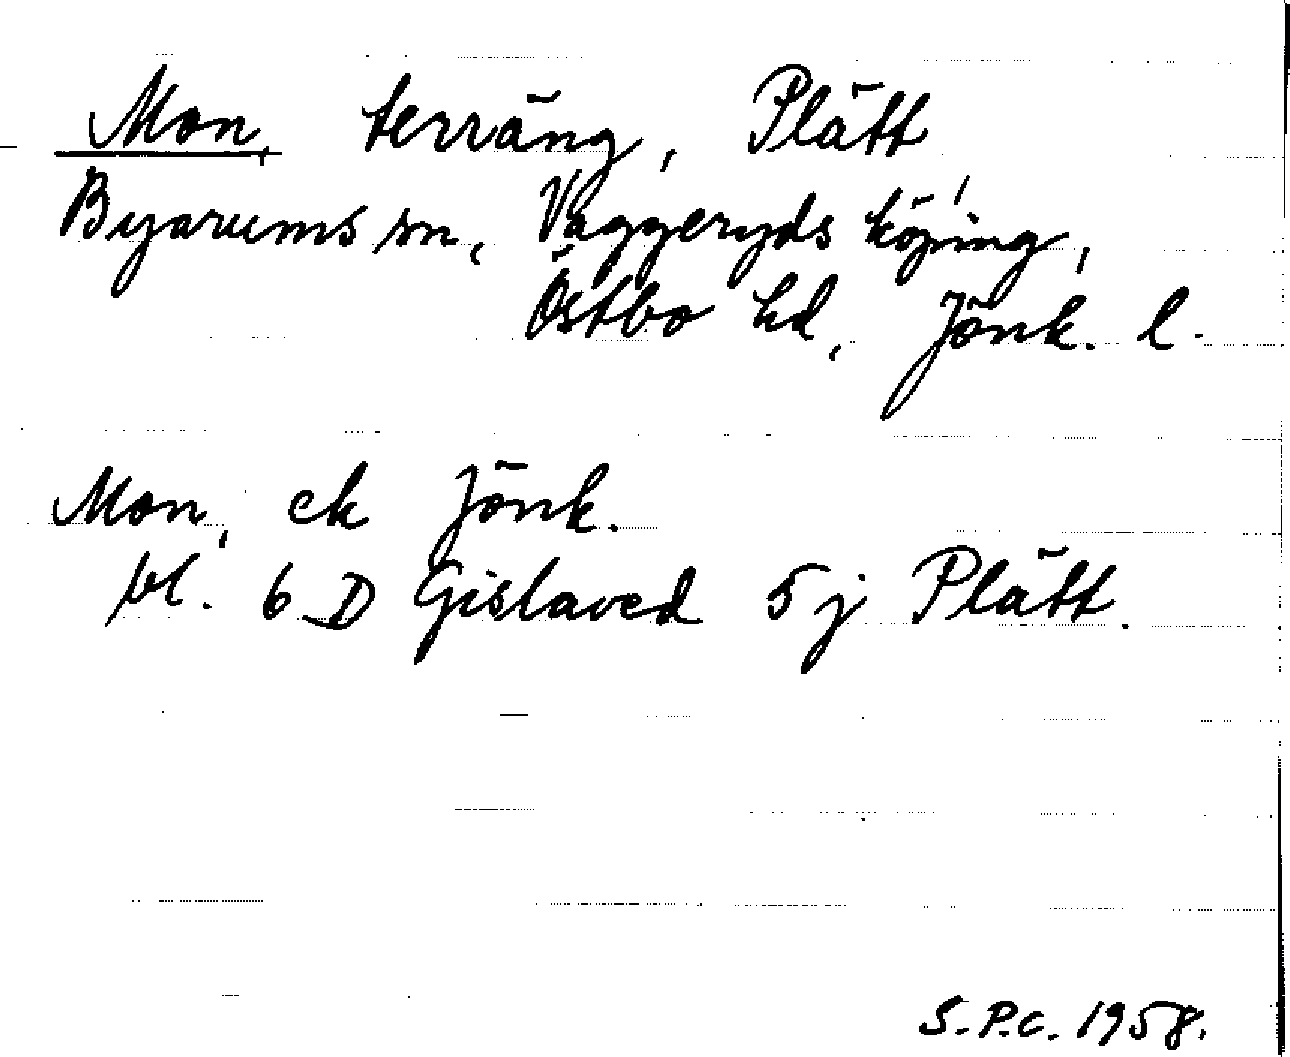 Mon, terräng, Plätt
Byarums sn, Vaggeryds köping,
Östbo hd, Jönk. l.
Mon, ek Jönk.
bl. 6 D Gislaved 5 j Plätt.
S.P.C. 1958.